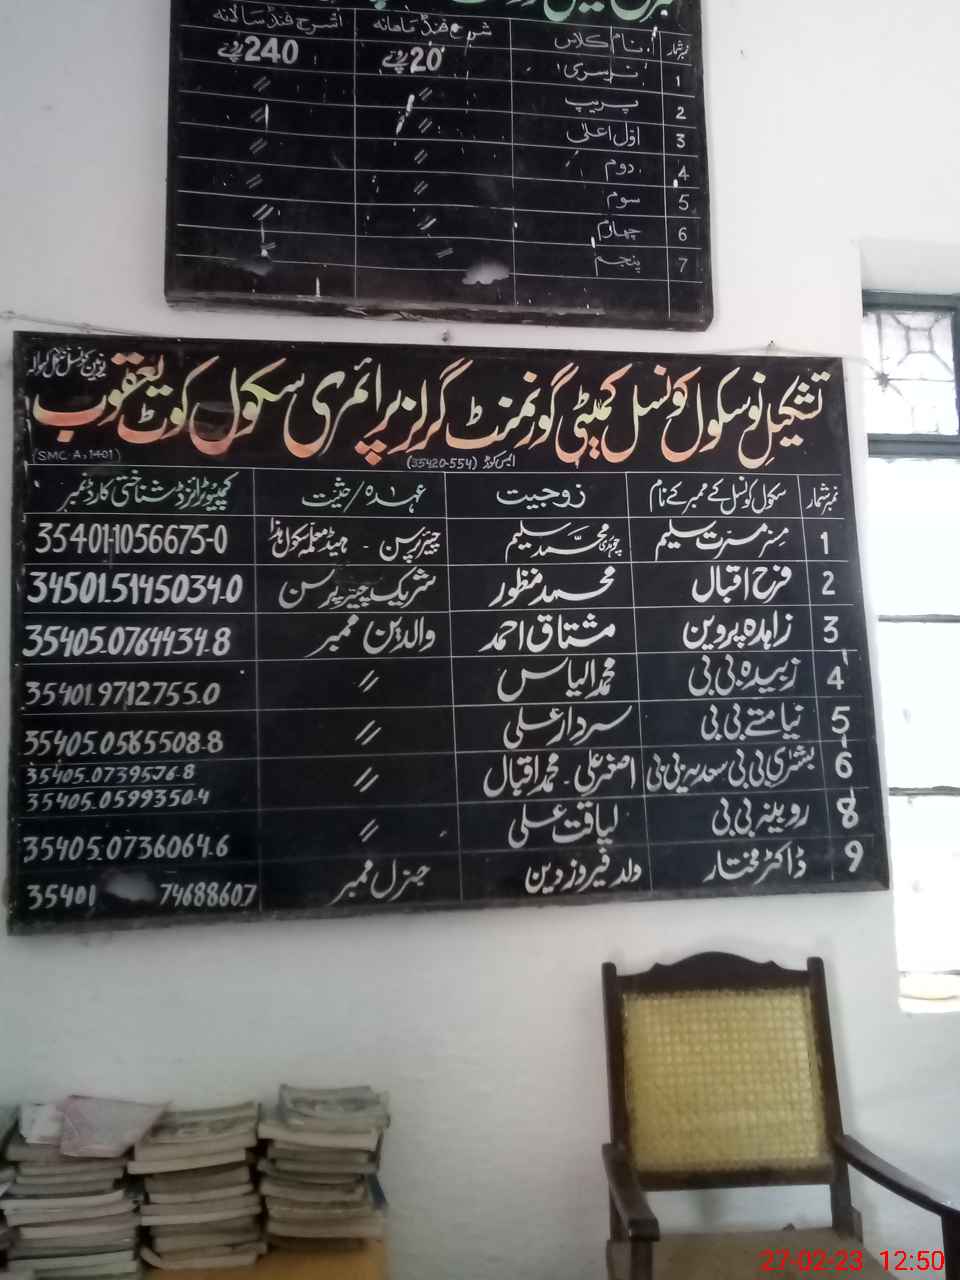 نمبر شمار نام کلاس شرح فنڈ ماہانہ شرح فنڈ سالانہ
1 نرسری 20 روپے 240 روپے
2 پریپ 〃 〃
3 اوّل اعلیٰ 〃 〃
4 دوم 〃 〃
5 سوم 〃 〃
6 چہارم 〃 〃
7 پنجم 〃 〃
تشکیلِ نو سکول کونسل کمیٹی گورنمنٹ گرلز پرائمری سکول کوٹ یعقوب
یونین کونسل
(S.M.C-A, 1401)
ایمس کوڈ (35420-554)
نمبر شمار سکول کونسل کے ممبر کے نام زوجیت عہدہ/حیثیت کمپیوٹرائزڈ شناختی کارڈ نمبر
1 مسز مسرت سلیم چوہدری محمد سلیم چیئرپرسن - ہیڈ معلمہ سکول ہذا 35401-1056675-0
2 فرح اقبال محمد منظور شریک چیئرپرسن 34501.5145034.0
3 زاہدہ پروین مشتاق احمد والدین ممبر 35405.0764434.8
4 زبیدہ بی بی محمد الیاس 〃 35401.9712755.0
5 نیامتے بی بی سردار علی 〃 35405.0565508.8
6 بشریٰ بی بی سعدیہ بی بی اصغر علی - محمد اقبال 〃 35405.0739576.8
35405.0599350.4
8 روبینہ بی بی لیاقت علی 〃 35405.0736064.6
9 ڈاکٹر مختار ولد فیروز دین جنرل ممبر 35401 7468860.7
27-02-23 12:50